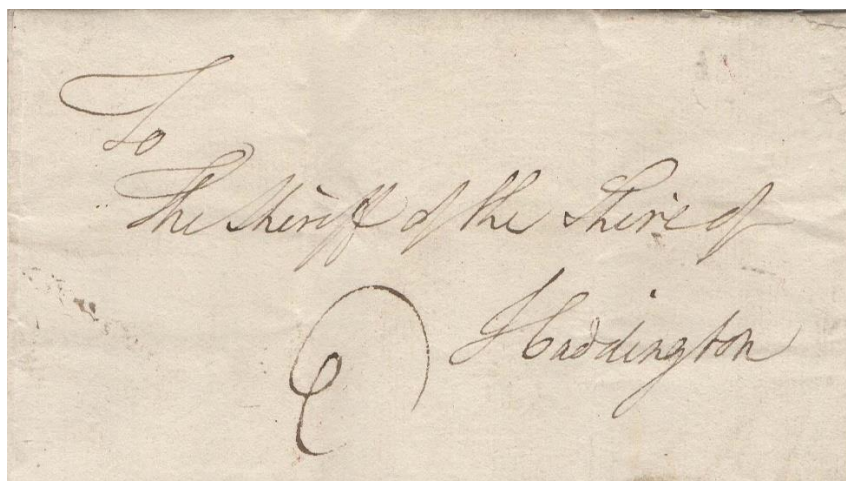 To
The Sheriff of the Shire of
Haddington